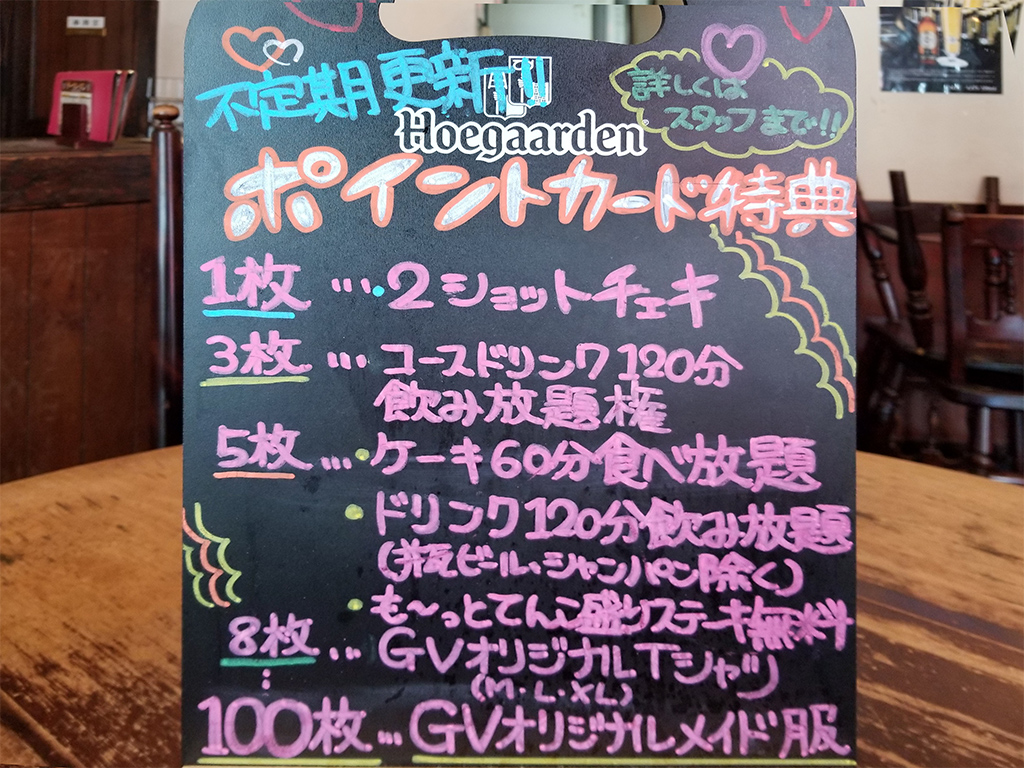 不定期更新!!
詳しくは
スタッフまで!!
Hoegaarden
ポイントカード特典
1枚…・2ショットチェキ
3枚…コースドリンク120分
飲み放題権
5枚…・ケーキ60分食べ放題
・ドリンク120分飲み放題
(瓶ビール、シャンパン除く)
・も〜っとてんこ盛りステーキ無料
8枚…GVオリジナルTシャツ
(M・L・XL)
100枚…GVオリジナルメイド服